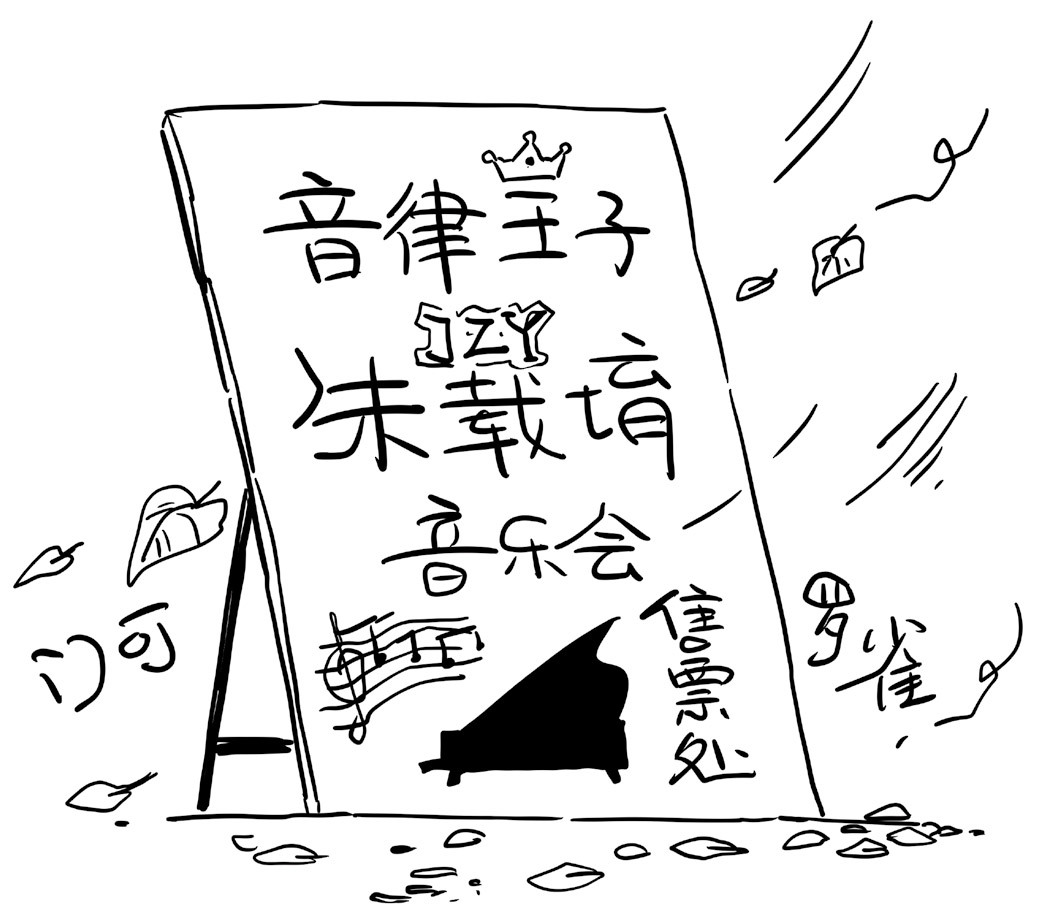 音律王子
JZY
朱载堉
音乐会
售票处
门可
罗雀